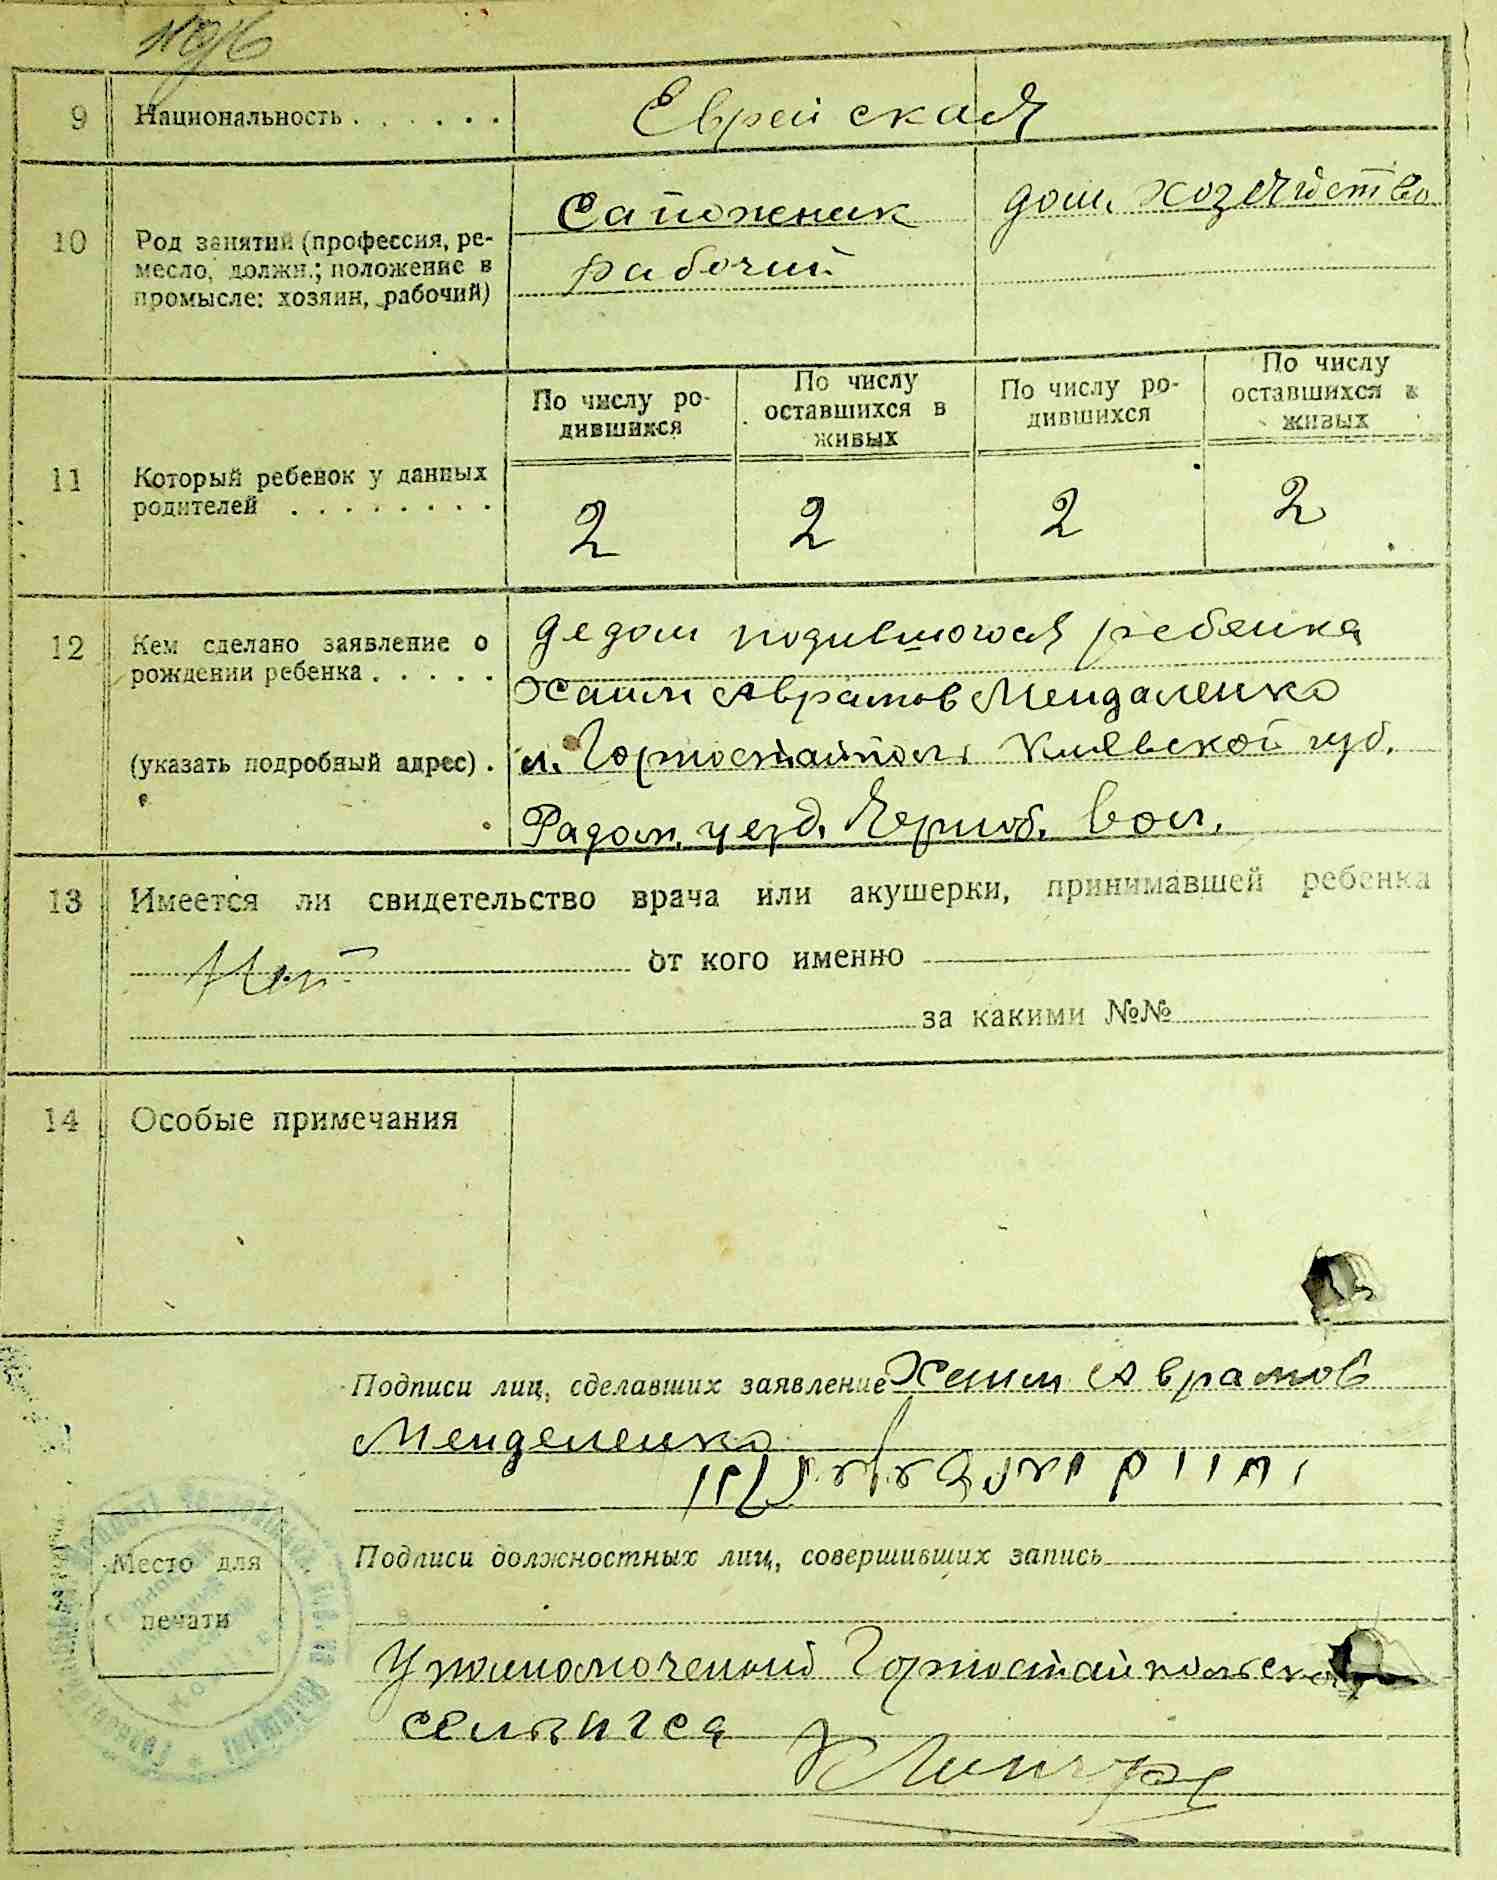 9 Национальность . . . . . . Еврейская
10 Род занятий (профессия, ре-
месло, должн.; положение в
промысле: хозяин, рабочий)
Сапожник
рабочий
дом. хозяйство
11 Который ребенок у данных
родителей . . . . . . . .
По числу ро-
дившихся
По числу
оставшихся в
живых
По числу ро-
дившихся
По числу
оставшихся в
живых
2 2 2 2
12 Кем сделано заявление о
рождении ребенка . . . . .
(указать подробный адрес) .
дедом родившогося ребенка
Хаим Аврамов Мендаленко
м. Горностайполь Киевской губ.
Радом. уезд. Черноб. вол.
13 Имеется ли свидетельство врача или акушерки, принимавшей ребенка
Нет от кого именно
за какими №№
14 Особые примечания
Подписи лиц, сделавших заявление Хаим Аврамов
Менделенко
Подписи должностных лиц, совершивших запись
Место для
печати
Уполномоченный Горностайпольско